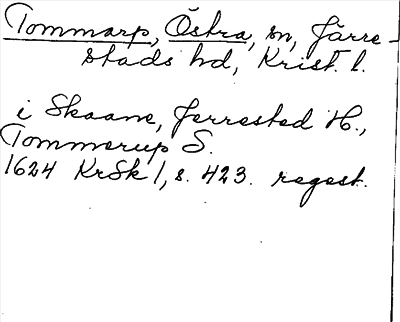 Tommarp, Östra, sn, Järre-
stads hd, Krist. l.
i Skaane, Jerrested H.,
Tommerup S.
1624 KrSk 1, s. 423. regest.